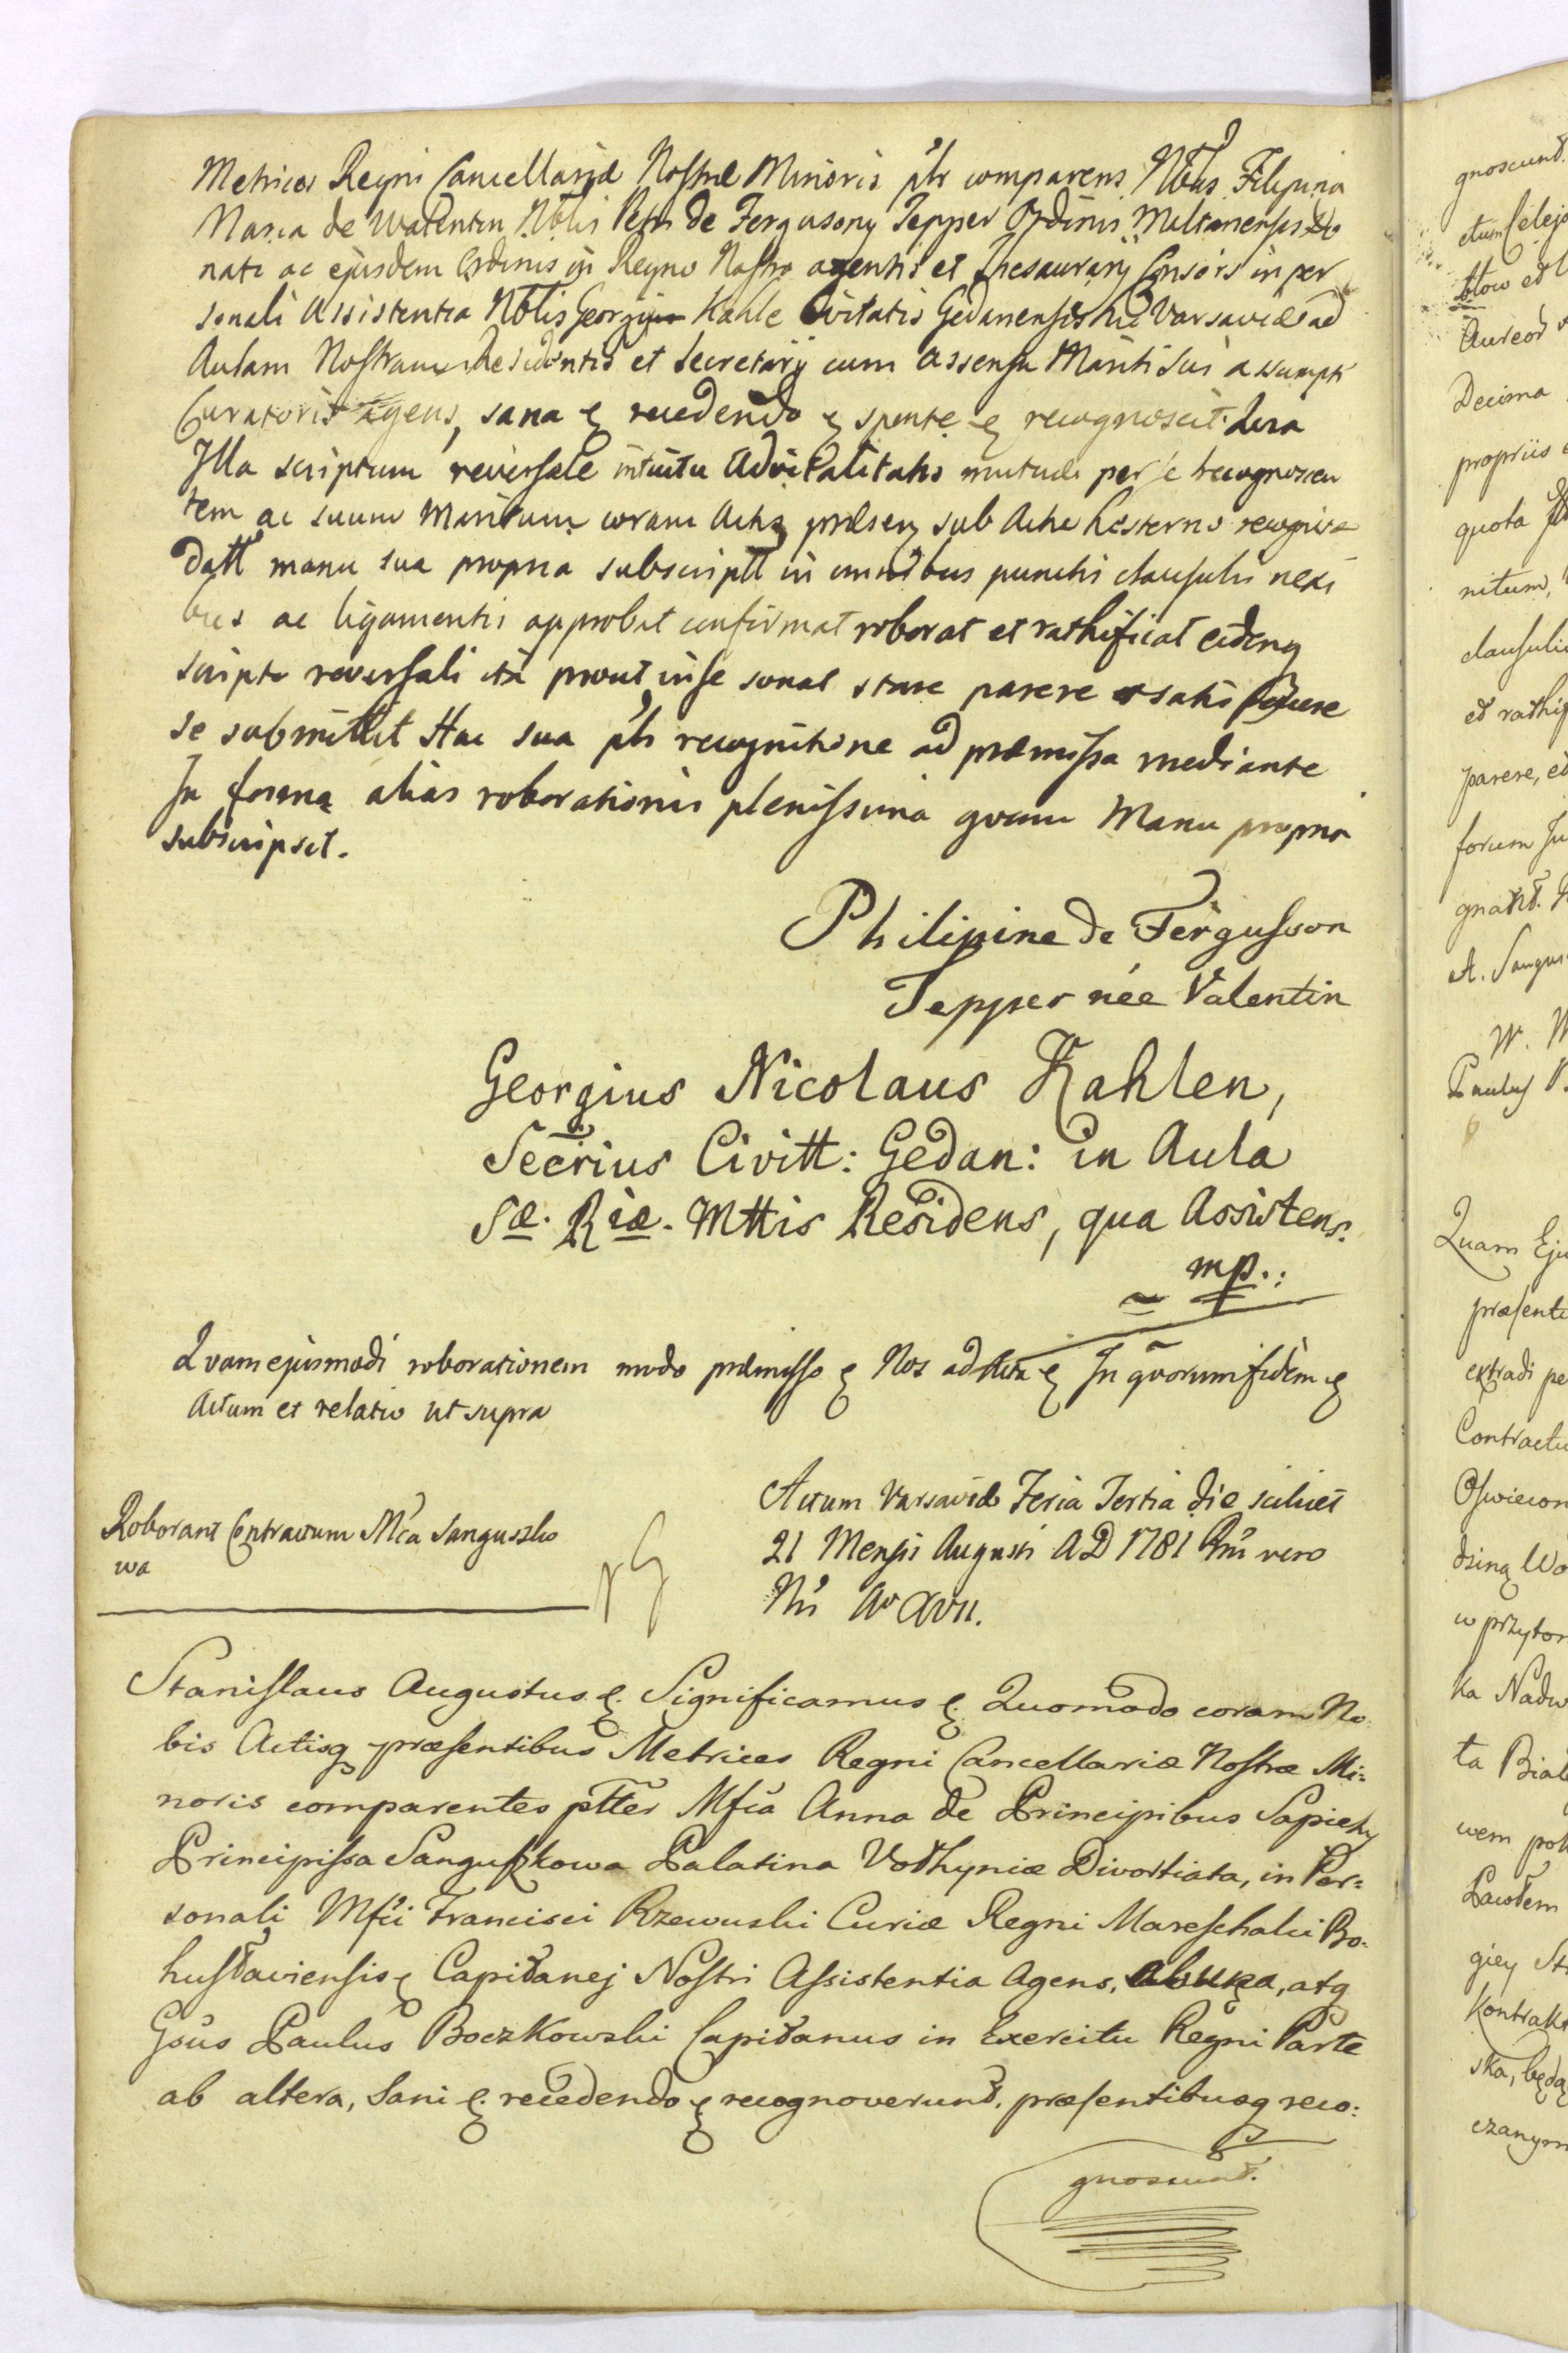 Metrices Regni Cancellariæ Nostræ Minoris plr comparens Nblis Filipina
Maria de Watentin Nblis Petri de Fergusony Tepper Ordinis Meltanensis Do
nati ac ejusdem Ordinis in Regno Nostro agentis et Thesaurarij Consors in per
sonali Assistentia Nblis Georgij Kahle Civitatis Gedanensis hic Varsaviæ ad
Aulam Nostram Residentis et Secretarij cum assensu Mariti sui assumpti
Curatoris agens, sana & recedendo & sponte & recognoscit. Quia
Illa scriptum reversale intuitu Advitalitatis mutuæ per se recognoscen
tem ac suum Maritum coram Actis præsen sub Actu hesterno recognitæ
datt manu sua propria subscriptt in omnibus punctis clausulis nexi
bus ac ligamentis approbat confirmat roborat et rathificat eidemq
scripto reversali ita prout in se sonat stare parere et satis facere
se submittit Hac sua plr recognitione ad præmissa mediante
In forma alias roborationis plenissima quam Manu propria
subscripsit.
Philipine de Fergusson
Tepper née Valentin
Georgius Nicolaus Kahlen,
Secrius Civitt: Gedan: in Aula
Sæ. Riæ. Mttis Residens, qua Assistens.
mp.:
Quam ejusmodi roborationem modo præmisso & Nos ad Acta & In quorum fidem &
Actum et relatio ut supra
Roborant Contractum Mca Sanguszko
wa
Actum Varsaviæ Feria Tertia die scilicet
21 Mensis Augusti AD 1781 Rni vero
Nri Ao XVII.
Stanislaus Augustus &. Significamus &. Quomodo coram No
bis Actisq præsentibus Metrices Regni Cancellariæ Nostræ Mi:
noris comparentes ptter Mfca Anna de Principibus Sapiehy
Principissa Sanguszkowa Palatina Vołhyniæ Divortiata, in Per:
sonali Mfci Francisci Rzewuski Curiæ Regni Mareschalci Bo:
husłaviensis & Capitanej Nostri Assistentia Agens, ab una, atq
Gsus Paulus Boczkowski Capitanus in Exercitu Regni Parte
ab altera, Sani &. recedendo & recognoverunt, præsentibusq reco:
gnoscunt.
gnoscunt.
Aureor
Decima
propriis
quota
nitum,
clausulis
parere, et
forum
A. Sangus
W. M
Paulus
Quam Eju
præsenti
extradi pe
Contractu
w przytom
ka Nadw
ta Biał
wem
Pawłem
giey
Kontrakt
ska, będą
czanym